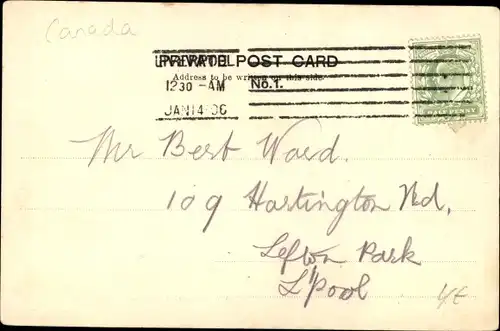 Canada
LIVERPOOL
PRIVATE POST CARD
Address to be written on this side.
12 30 - AM
No. 1.
JAN 14 06
Mr Bert Ward.
109 Hartington Rd,
Sefton Park
L'Pool